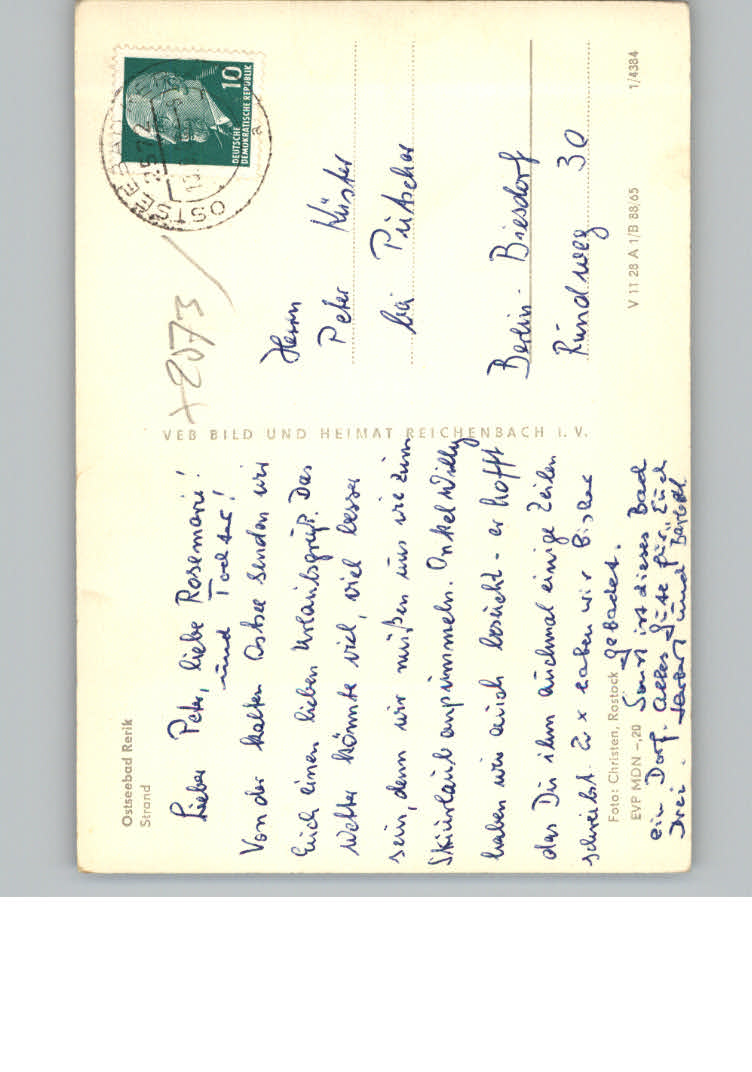 Ostseebad Rerik
Strand
Lieber Peter, liebe Rosemarie!
und Tochter!
Von der kalten Ostsee senden wir
Euch einen lieben Urlaubsgruß. Das
Wetter könnte viel, viel besser
sein, denn wir müßen uns wie zum
Skiurlaub anpummeln. Onkel Willy
haben wir auch besucht - er hofft
das Du ihm auchmal einige Zeilen
schreibst. 2 x haben wir bisher
gebadet.
Sonst ist dieses Bad
ein Dorf. Alles Gute für Euch
Drei. Herbert und Bärbel
Foto: Christen, Rostock
EVP MDN -,20
VEB BILD UND HEIMAT REICHENBACH I. V.
+2073
OSTSEEBAD
a
10
DEUTSCHE
DEMOKRATISCHE REPUBLIK
Herrn
Peter Küster
bei Pritscher
Berlin-Biesdorf
Rundweg 30
V 11 28 A 1/B 88/65
1/4384